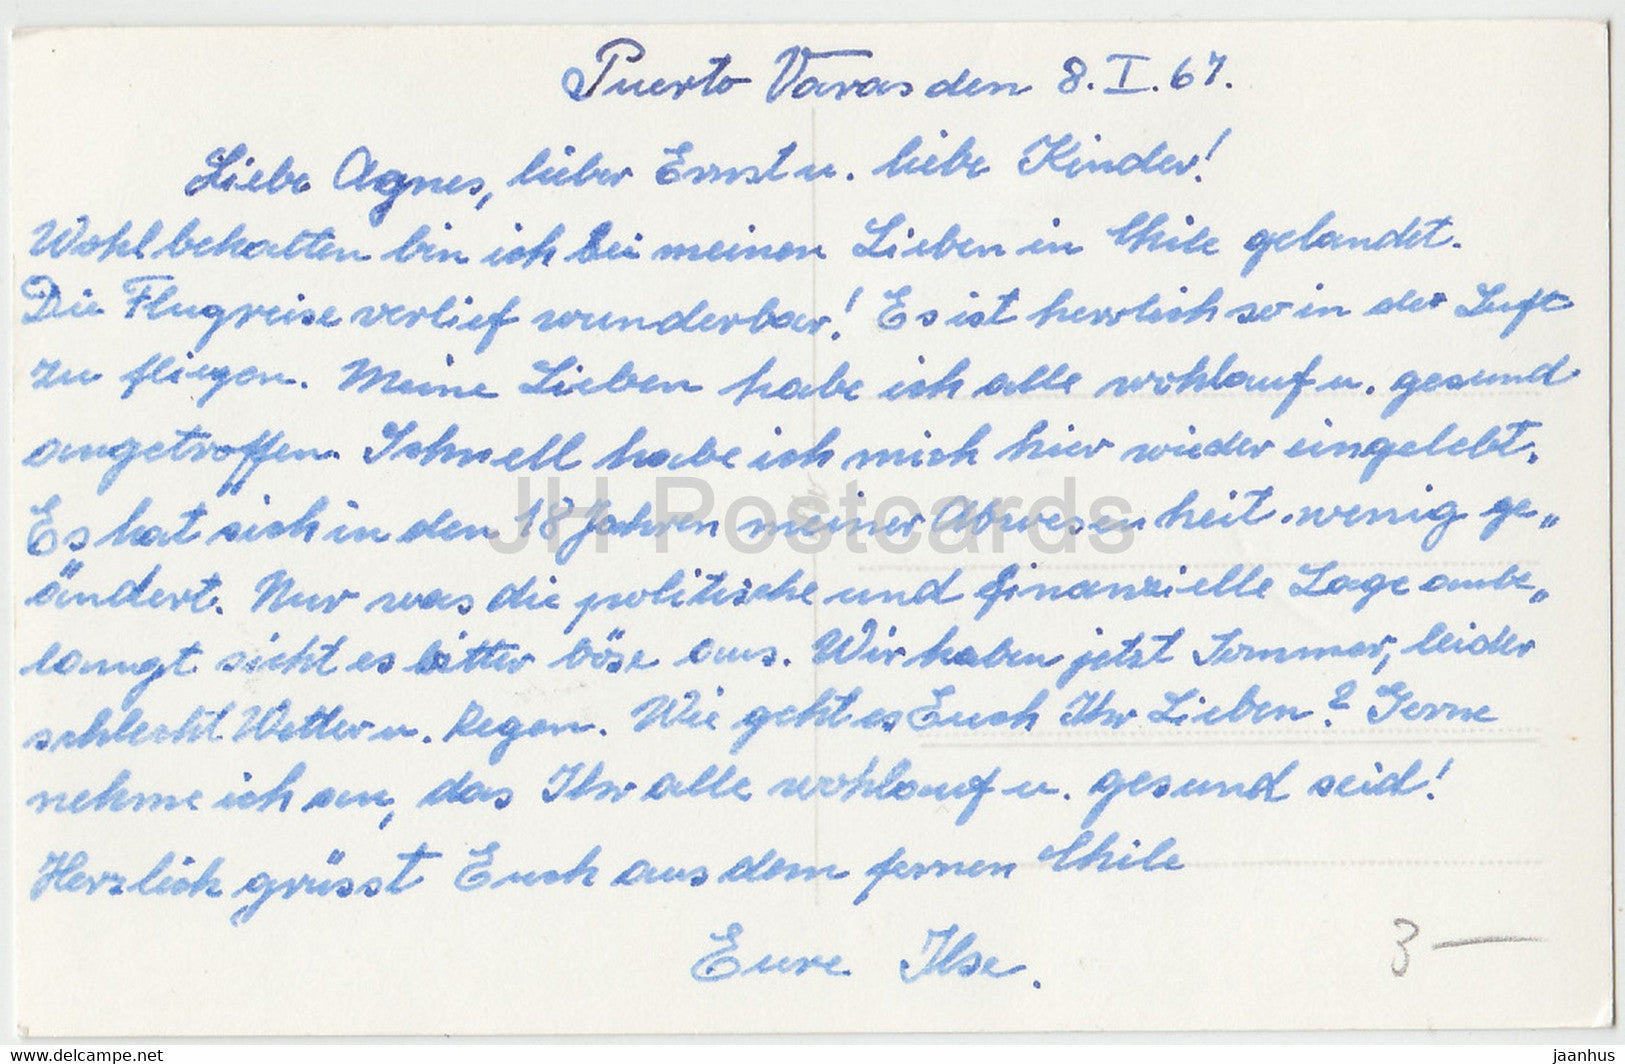 Puerto Varas den 8. I. 67.
Liebe Agnes, lieber Ernst u. liebe Kinder!
Wohlbehalten bin ich bei meinen Lieben in Chile gelandet.
Die Flugreise verlief wunderbar! Es ist herrlich so in der Luft
zu fliegen. Meine Lieben habe ich alle wohlauf u. gesund
angetroffen. Schnell habe ich mich hier wieder eingelebt.
Es hat sich in den 18 Jahren meiner Abwesenheit wenig ge„
ändert. Nur was die politische und finanzielle Lage anbe„
langt sieht es bitter böse aus. Wir haben jetzt Sommer, leider
schlecht Wetter u. Regen. Wie geht es Euch Ihr Lieben? Gerne
nehme ich an, das Ihr alle wohlauf u. gesund seid!
Herzlich grüsst Euch aus dem fernen Chile
Eure Ilse.
3 —
JH Postcards
www.delcampe.net
jaanhus